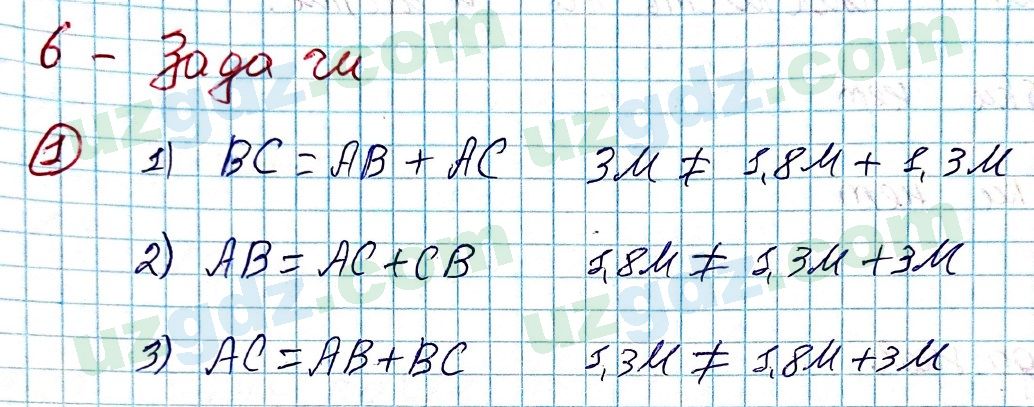 6 - Зада чи
1 1) BC = AB + AC 3м ≠ 1,8м + 1,3м
2) AB = AC + CB 1,8м ≠ 1,3м + 3м
3) AC = AB + BC 1,3м ≠ 1,8м + 3м
uzgdz.com uzgdz.com
uzgdz.com uzgdz.com